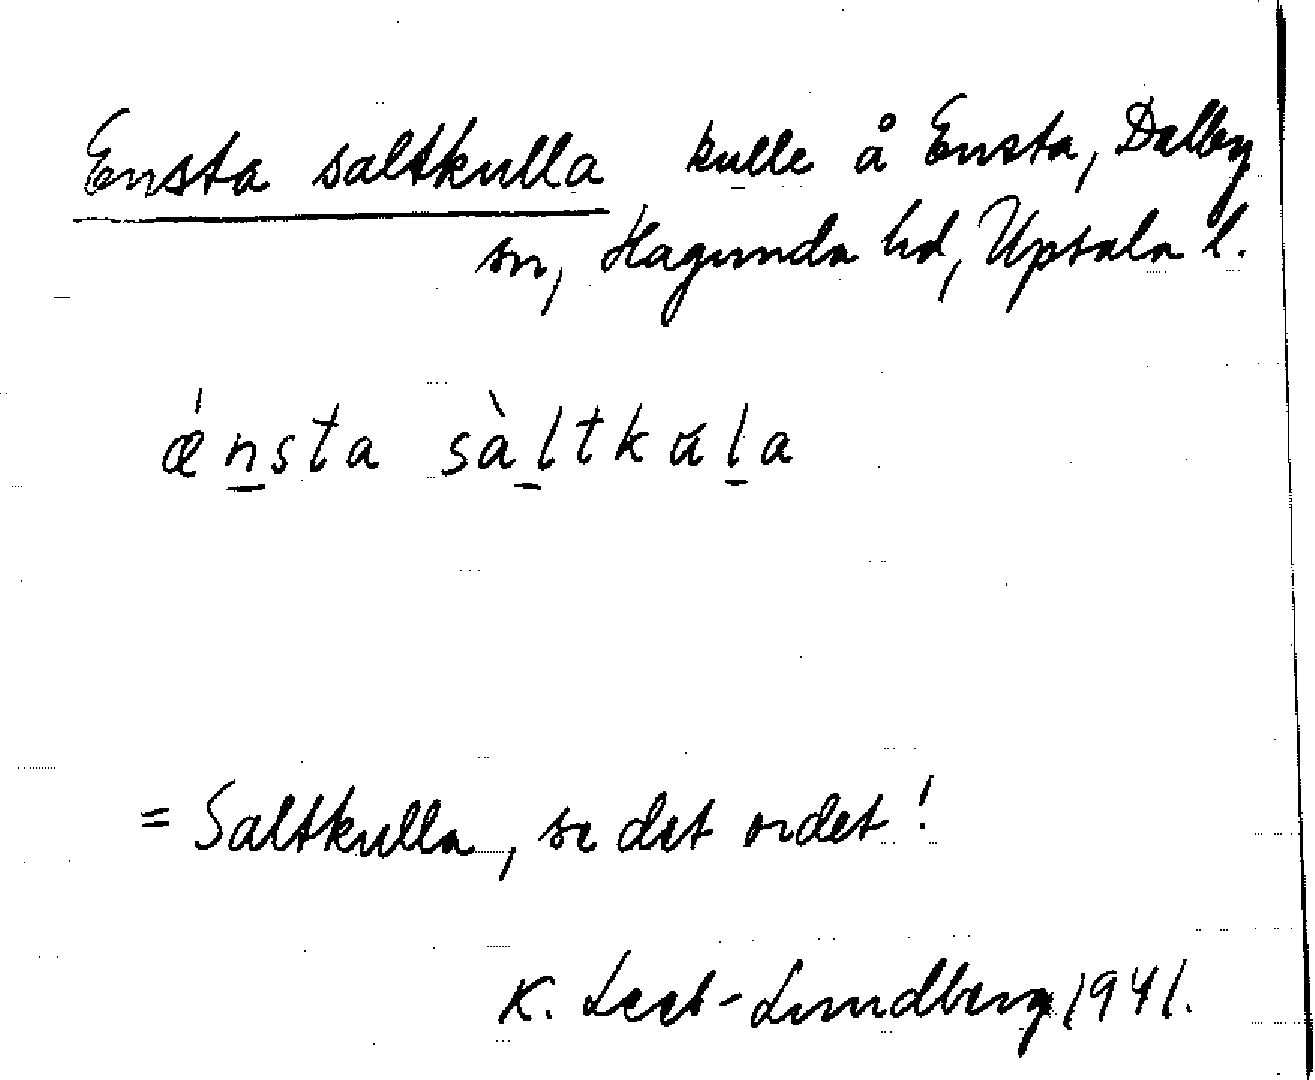 Ensta saltkulla kulle å Ensta, Dalby
sn, Hagunda hd, Upsala l.
ǽnsta sàltkala
= Saltkulla, se det ordet!
K. Leeb-Lundberg 1941.